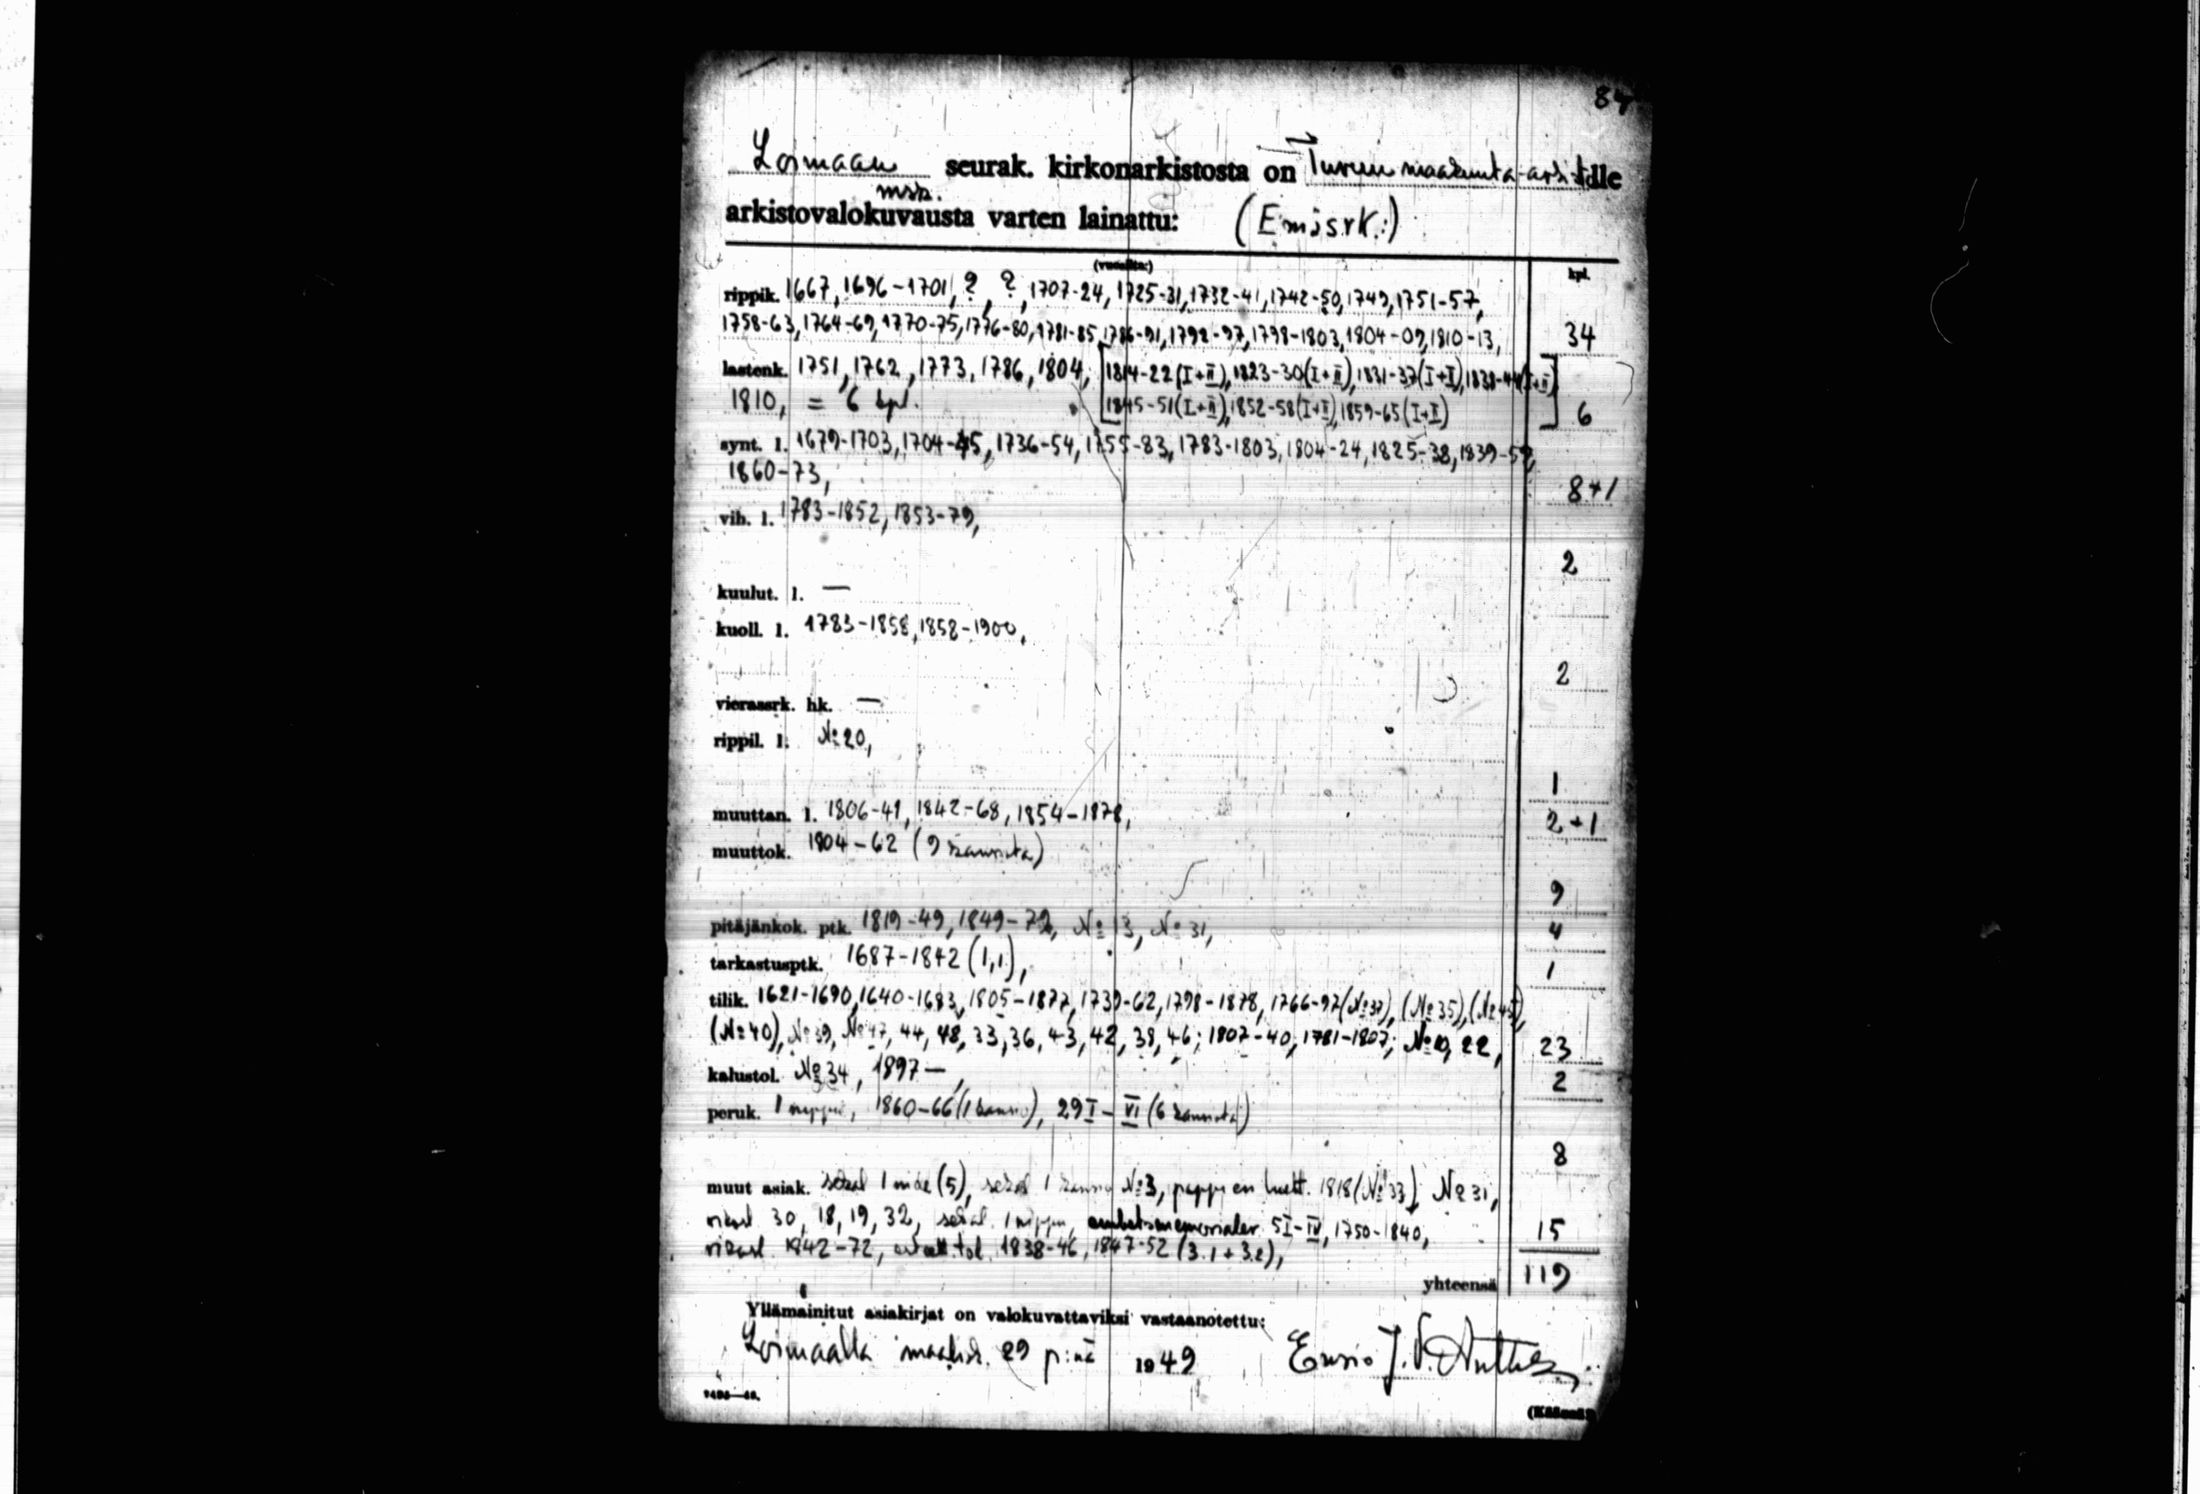 84
Loimaan seurak. kirkonarkistosta on Turun maakunta-ark:lle
msk.
arkistovalokuvausta varten lainattu: (Emäsrk.:)
(vuosilta:) kpl.
rippik. 1667, 1696-1701, ?, ?, 1707-24, 1725-31, 1732-41, 1742-50, 1749, 1751-57,
1758-63, 1764-69, 1770-75, 1776-80, 1781-85, 1786-91, 1792-97, 1798-1803, 1804-09, 1810-13, 34
lastenk. 1751, 1762, 1773, 1786, 1804, [1814-22 (I+II), 1823-30 (I+II), 1831-37 (I+I), 1838-44 (I+II)
1810, = 6 kpl. 1845-51 (I+II), 1852-58 (I+I), 1859-65 (I+I)] 6
synt. l. 1679-1703, 1704-45, 1736-54, 1755-83, 1783-1803, 1804-24, 1825-38, 1839-59,
1860-73, 8+1
vih. l. 1783-1852, 1853-79,
2
kuulut. l. —
kuoll. l. 1783-1858, 1858-1900,
2
vierassrk. hk. —
rippil. l. № 20,
1
muuttan. l. 1806-41, 1842-68, 1854-1878, 2+1
muuttok. 1804-62 (9 kansiota)
9
pitäjänkok. ptk. 1819-49, 1849-72, № 13, № 31, 4
tarkastusptk. 1687-1842 (1,1), 1
tilik. 1621-1690, 1640-1683, 1805-1877, 1739-62, 1798-1878, 1766-97 (№ 37), (№ 35), (№ 45),
(№ 40), № 39, № 47, 44, 48, 33, 36, 43, 42, 38, 46; 1807-40, 1781-1807; № 10, 22, 23
kalustol. № 34, 1897—, 2
peruk. 1 nippu, 1860-66 (1 kansio), 29 I-VI (6 kansiota)
8
muut asiak. sekal 1 nide (5), sekal 1 kansio № 3, pappien luett. 1818 (№ 33), № 31,
30, 18, 19, 32, sekal. 1 nippu, embetsmemorialer 5 I-IV, 1750-1840, 15
1842-72, 1838-46, 1847-52 (3.1+3.2),
yhteensä 119
Yllämainitut asiakirjat on valokuvattaviksi vastaanotettu:
Loimaalla maalisk. 29 p:nä 1949 Ensio J.
(Käännä!)